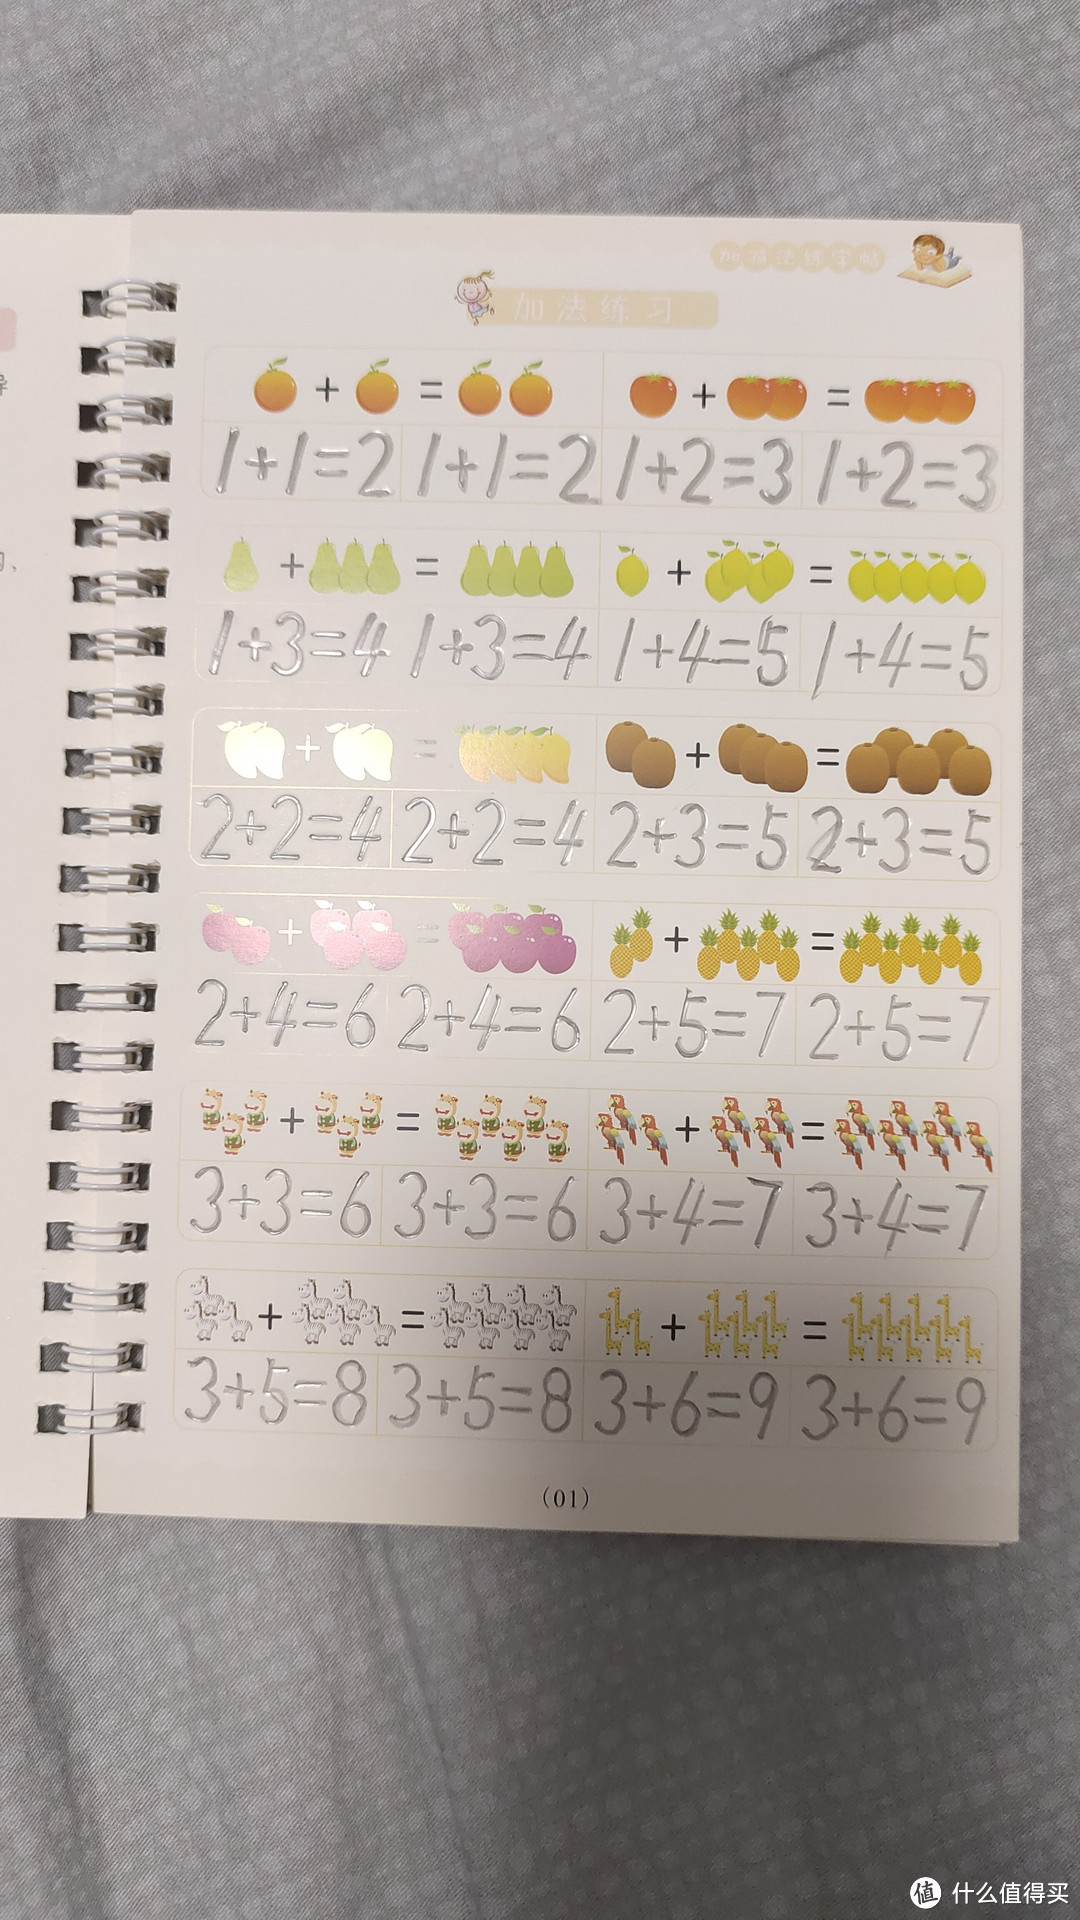 加减法练字帖
加法练习
+ = + =
1+1=2 1+1=2 1+2=3 1+2=3
+ = + =
1+3=4 1+3=4 1+4=5 1+4=5
+ = + =
2+2=4 2+2=4 2+3=5 2+3=5
+ = + =
2+4=6 2+4=6 2+5=7 2+5=7
+ = + =
3+3=6 3+3=6 3+4=7 3+4=7
+ = + =
3+5=8 3+5=8 3+6=9 3+6=9
(01)
值 什么值得买